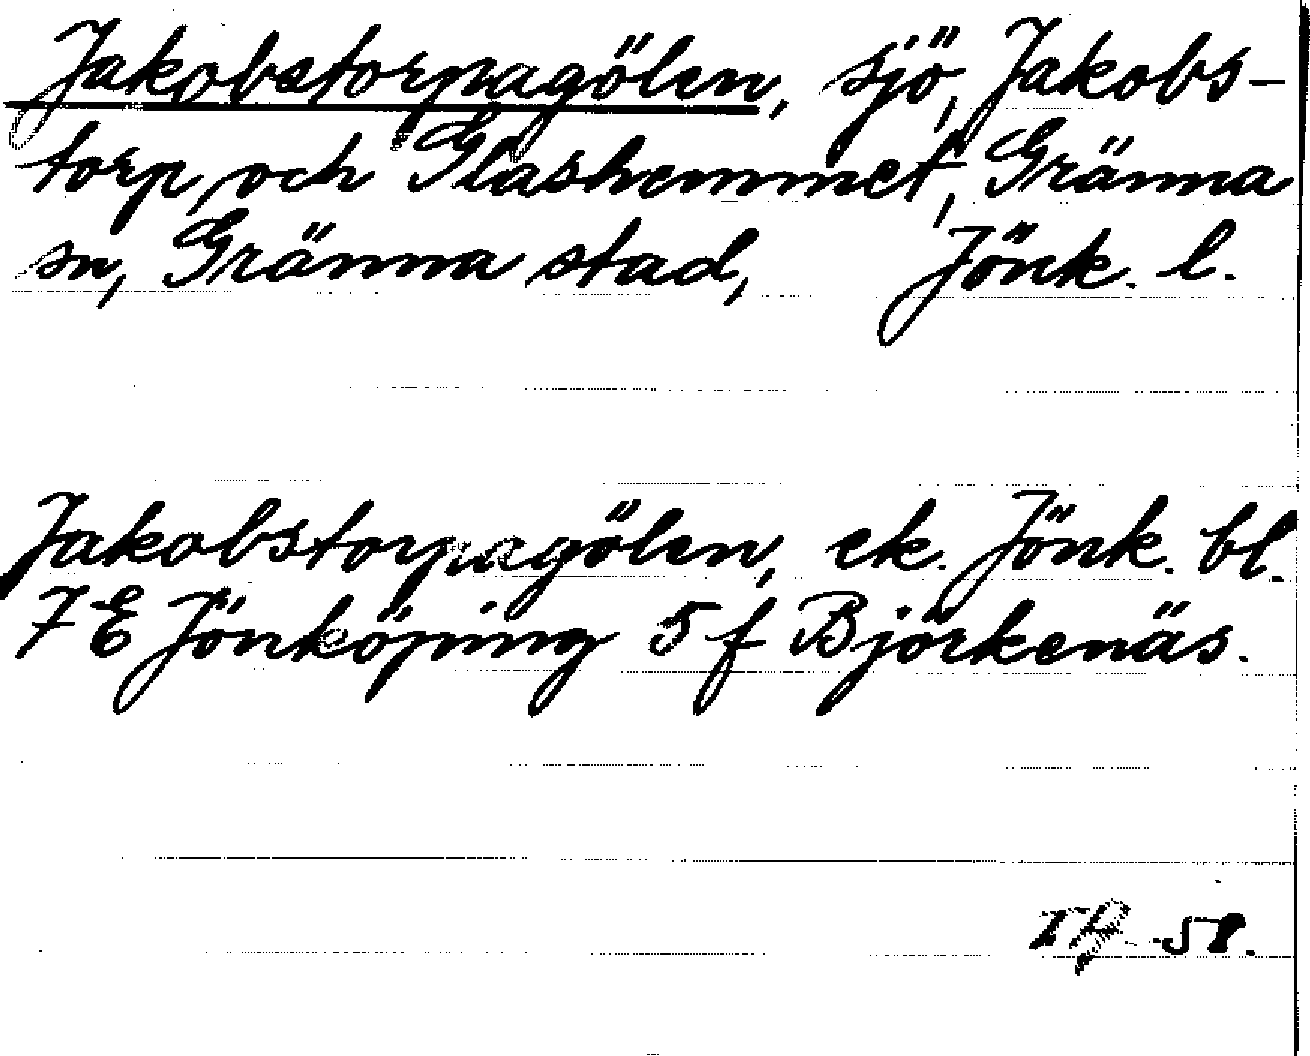 Jakobstorpagölen, sjö, Jakobs-
torp och Glashemmet, Gränna
sn, Gränna stad, Jönk. l.
Jakobstorpagölen, ek. Jönk. bl.
7 E Jönköping 5 f Björkenäs.